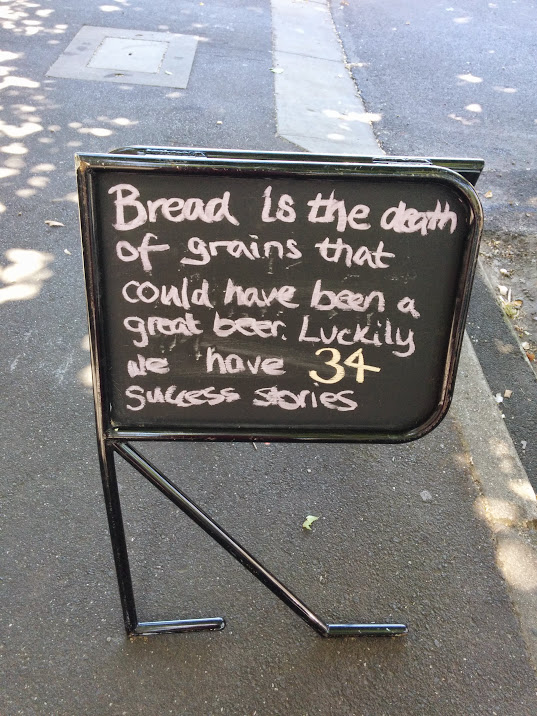 Bread is the death
of grains that
could have been a
great beer. Luckily
we have 34
success stories